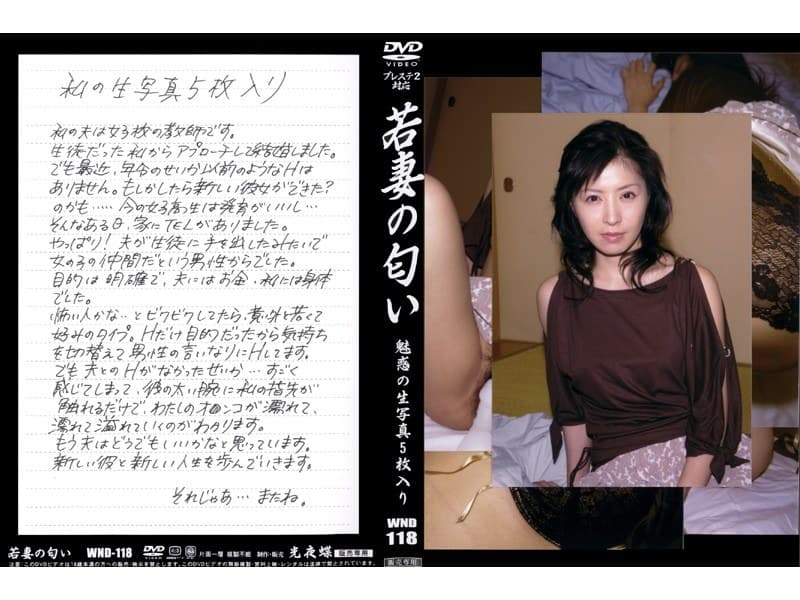 私の生写真5枚入り
私の夫は女子校の教師です。
生徒だった私からアプローチして結婚しました。
でも最近、年令のせいか以前のようなHは
ありません。もしかしたら新しい彼女ができた?
のかも…… 今の女子高生は発育がいいし…
そんなある日、家にTELがありました。
やっぱり!夫が生徒に手を出したみたいで
女の子の仲間だという男性からでした。
目的は明確で、夫にはお金、私には身体
でした。
怖い人かな…とビクビクしてたら、意外と若くて
好みのタイプ。Hだけ目的だったから気持ち
を切替えて男性の言いなりにHしてます。
でも夫とのHがなかったせいか…すごく
感じてしまって、彼の太い腕に私の指先が
触れるだけで、わたしのオ○ンコが濡れて、
濡れて溢れていくのがわかります。
もう夫はどうでもいいかなと思っています。
新しい彼と新しい人生を歩んでいきます。
それじゃあ…またね。
若妻の匂い WND-118 DVD VIDEO 4:3 片面一層 複製不能 制作・販売 光夜蝶 販売専用
DVD
VIDEO
プレステ2
対応
若妻の匂い
魅惑の生写真5枚入り
WND
118
販売専用